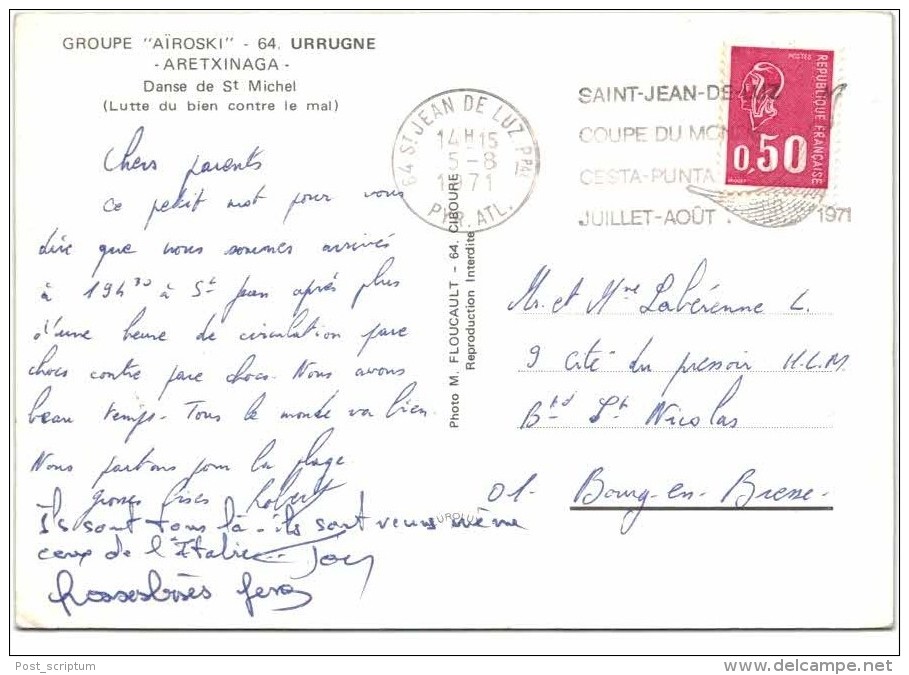 GROUPE "AÏROSKI" - 64. URRUGNE
- ARETXINAGA -
Danse de St Michel
(Lutte du bien contre le mal)
Chers parents
ce petit mot pour vous
dire que nous sommes arrivés
à 19h30 à St Jean après plus
d'une heure de circulation pare
chocs contre pare chocs. Nous avons
beau temps. Tous le monde va bien.
Nous partons pour la plage.
grosses bises Robert
Ils sont tous là - ils sont venus même
ceux de l'Italie
Photo M. FLOUCAULT - 64. CIBOURE
Reproduction Interdite
64 ST JEAN DE LUZ PPAL
14H15
5-8
1971
PYR. ATL.
SAINT-JEAN-DE
COUPE DU MON
CESTA-PUNTA
JUILLET-AOÛT 1971
POSTES
REPUBLIQUE FRANÇAISE
0,50
Mr. et Mme Labérenne L.
9 Cité du pressoir H.L.M
Bd St Nicolas
01. Bourg-en-Bresse.
Post_scriptum
delcampe.net